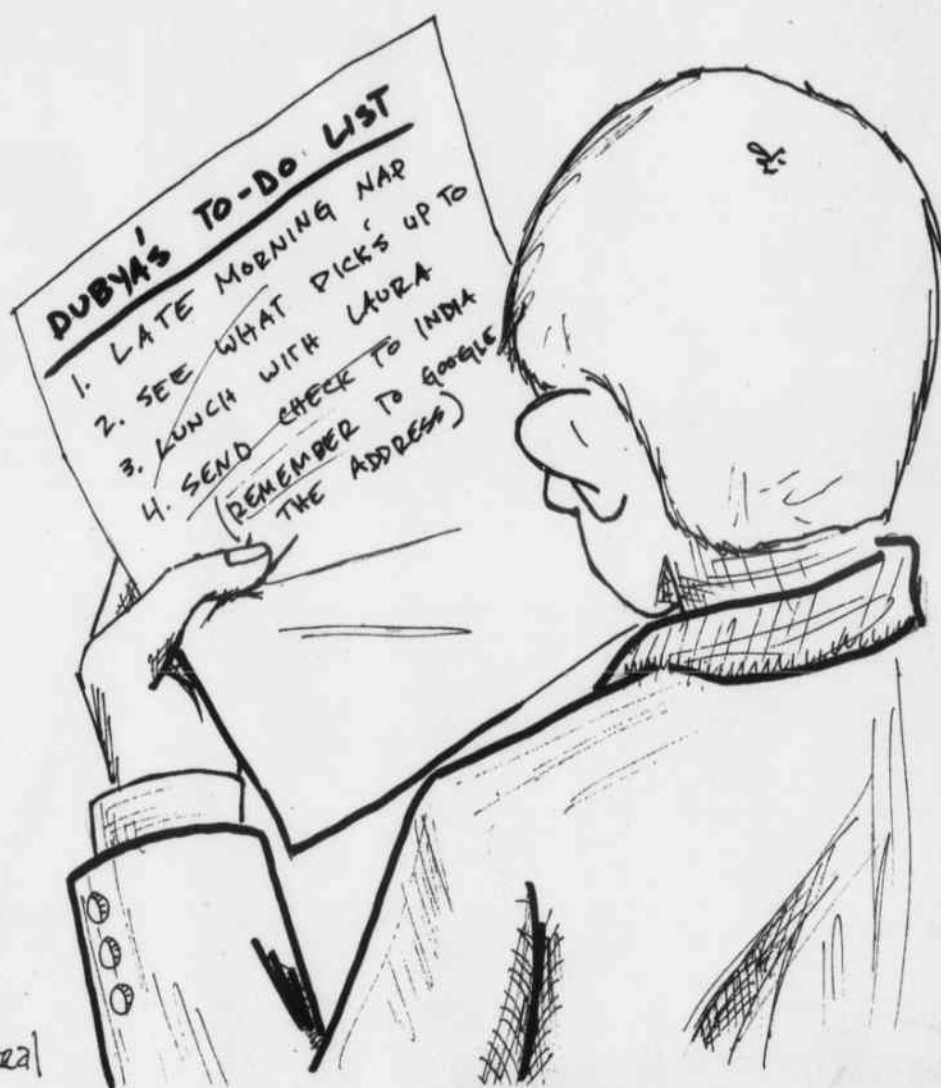 DUBYA'S TO-DO LIST
1. LATE MORNING NAP
2. SEE WHAT DICK'S UP TO
3. LUNCH WITH LAURA
4. SEND CHECK TO INDIA
(REMEMBER TO GOOGLE
THE ADDRESS)